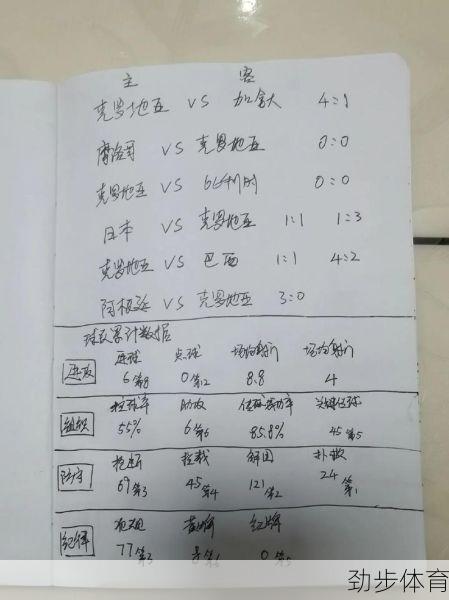 主 客
克罗地亚 VS 加拿大 4:1
摩洛哥 VS 克罗地亚 0:0
克罗地亚 VS 比利时 0:0
日本 VS 克罗地亚 1:1 1:3
克罗地亚 VS 巴西 1:1 4:2
阿根廷 VS 克罗地亚 3:0
球队累计数据
进球 点球 场均射门 场均射门
进攻 6第8 0第12 8.8 4
控球率 助攻 传球成功率 关键传球
组织 55% 6第6 85.8% 45第5
抢断 拦截 解围 扑救
防守 69第3 45第4 121第2 24第1
犯规 黄牌 红牌
纪律 77第3 8第6 0
劲步体育